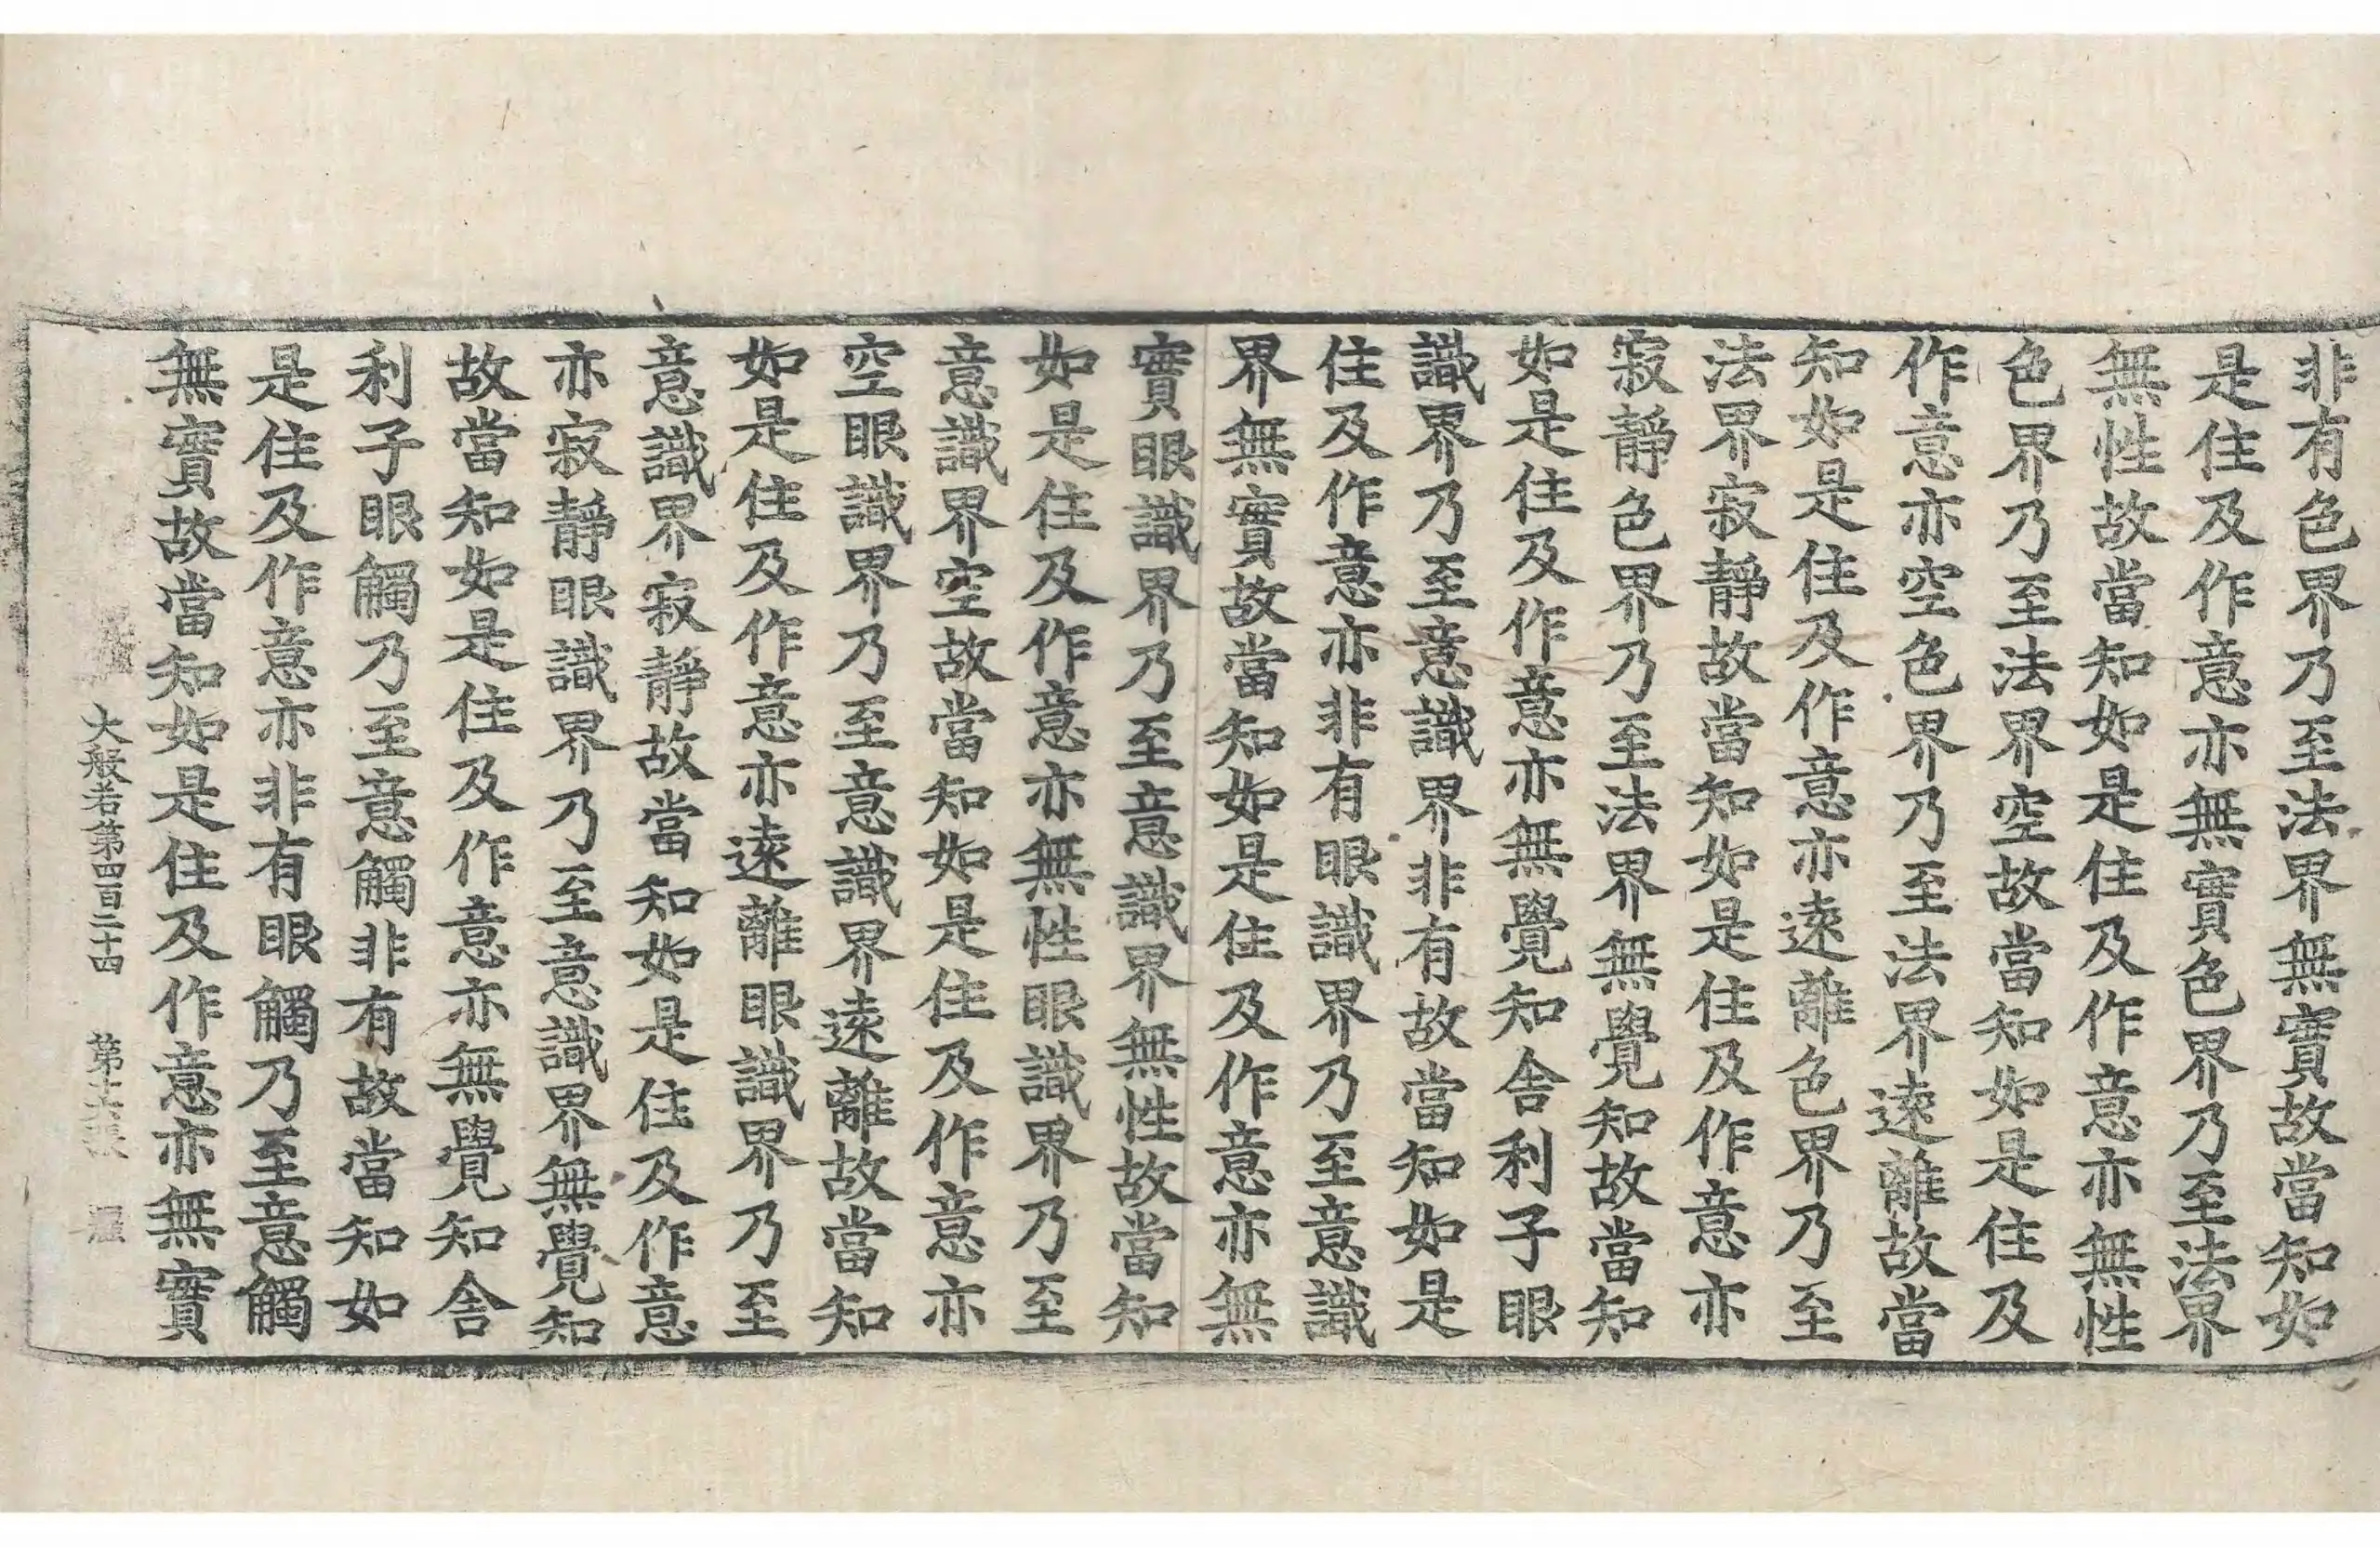 非有色界乃至法界無實故當知如
是住及作意亦無實色界乃至法界
無性故當知如是住及作意亦無性
色界乃至法界空故當知如是住及
作意亦空色界乃至法界遠離故當
知如是住及作意亦遠離色界乃至
法界寂靜故當知如是住及作意亦
寂靜色界乃至法界無覺知故當知
如是住及作意亦無覺知舍利子眼
識界乃至意識界非有故當知如是
住及作意亦非有眼識界乃至意識
界無實故當知如是住及作意亦無
實眼識界乃至意識界無性故當知
如是住及作意亦無性眼識界乃至
意識界空故當知如是住及作意亦
空眼識界乃至意識界遠離故當知
如是住及作意亦遠離眼識界乃至
意識界寂靜故當知如是住及作意
亦寂靜眼識界乃至意識界無覺知
故當知如是住及作意亦無覺知舍
利子眼觸乃至意觸非有故當知如
是住及作意亦非有眼觸乃至意觸
無實故當知如是住及作意亦無實
大般若第四百二十四 第